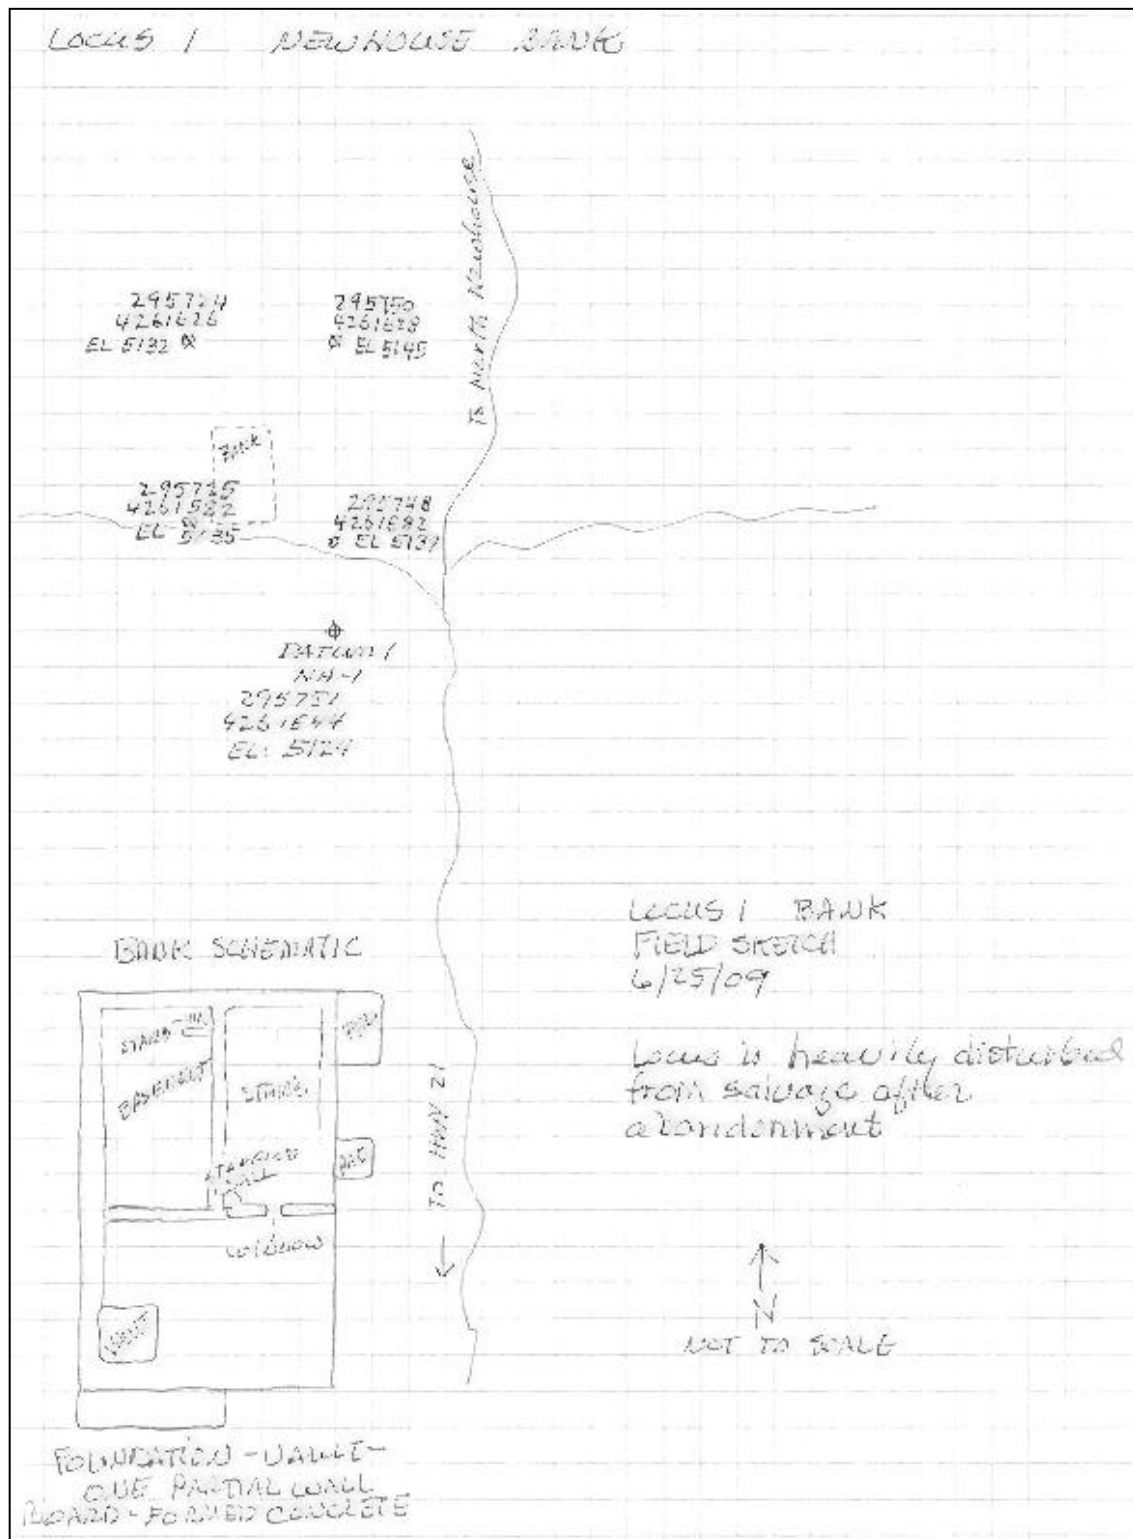 LOCUS 1 NEWHOUSE BANK
To North Newhouse
295724
4261626
EL 5132
295750
4261628
EL 5145
BANK
295725
4261582
EL 5135
295748
4261582
EL 5139
DATUM 1
NH-1
295751
4261544
EL: 5124
BANK SCHEMATIC
STAIRS
BASEMENT
STAIRS
STANDING
WALL
WINDOW
VAULT
To HWY 21
LOCUS 1 BANK
FIELD SKETCH
6/25/09
Locus is heavily disturbed
from salvage after
abandonment
N
NOT TO SCALE
FOUNDATION - VAULT -
ONE PARTIAL WALL
BOARD-FORMED CONCRETE